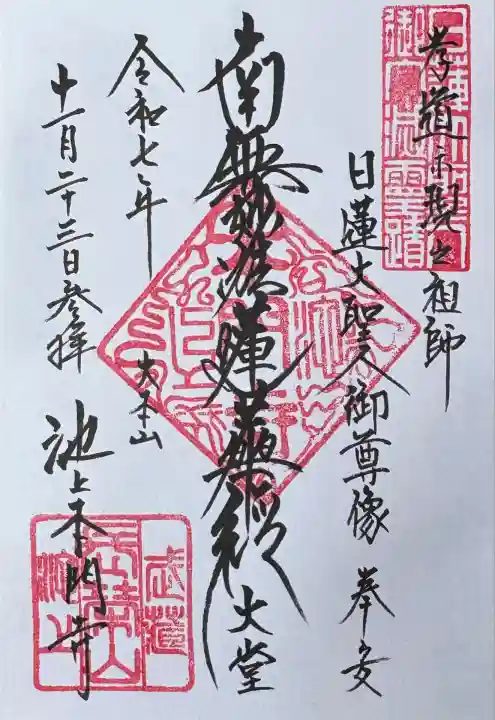 孝道示現之祖師
日蓮大聖人御尊像 奉安
南無妙法蓮華経
大堂
令和七年
十一月二十三日参拝
大本山
池上本門寺
御霊蹟
武蔵